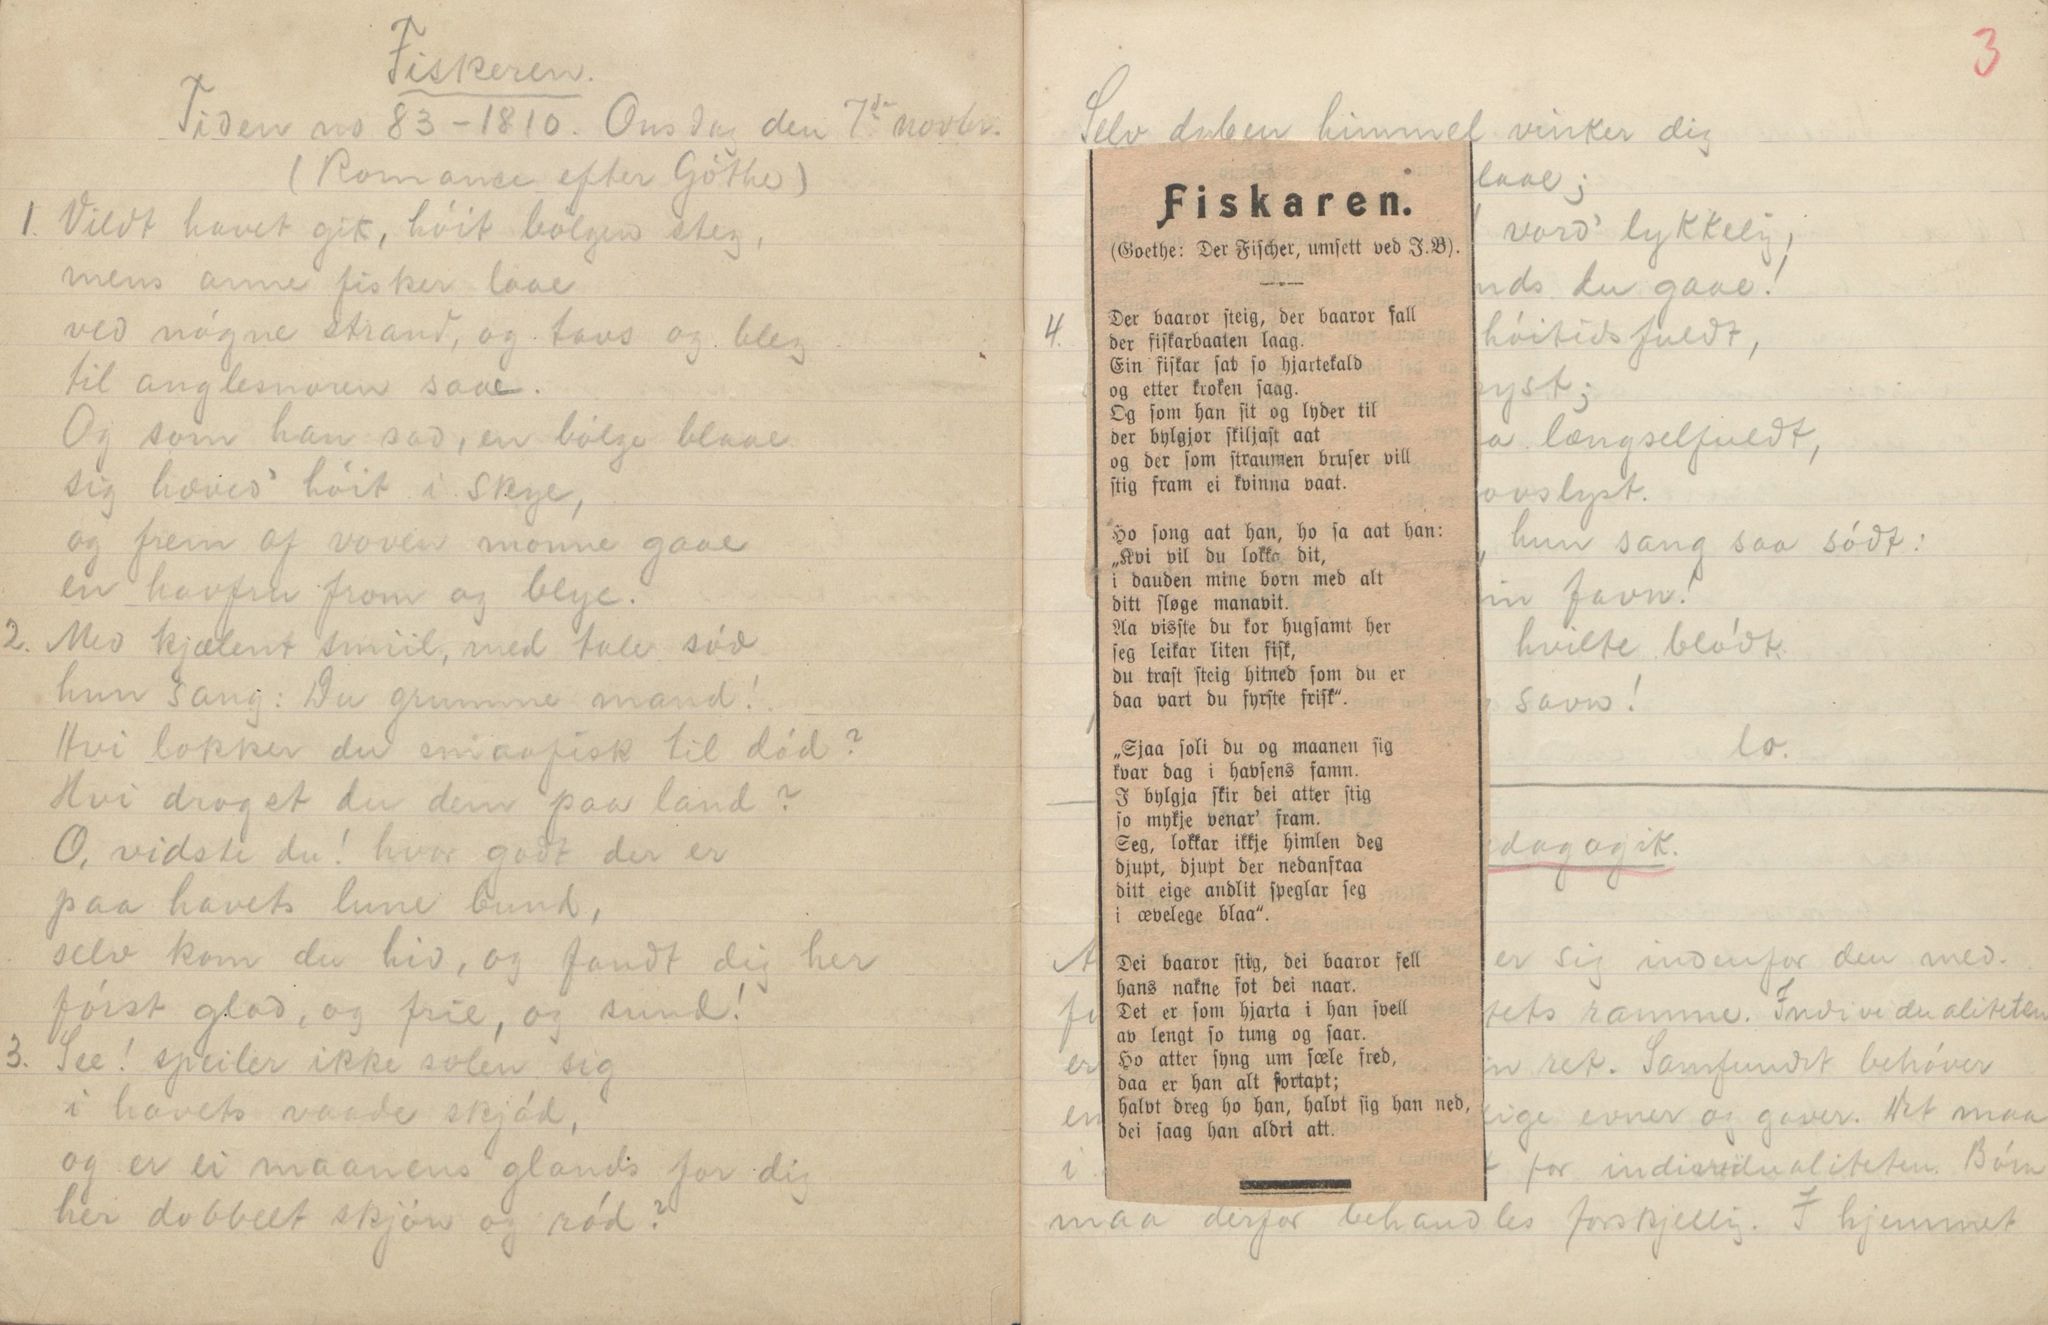 Fiskeren.
Tiden no 83 - 1810. Onsdag den 7de novbr.
(Romance efter Göthe)
1. Vildt havet gik, höit bölgen steg,
mens arme fisker laae
ved nögne strand, og tavs og bleg
til anglesnoren saae.
Og som han sad, en bölge blaae
sig hæved' höit i skye,
og frem af voven monne gaae
en havfru from og blye.
2. Med kjælent smiil, med tale söd
hun sang: Du grumme mand!
Hvi lokker du smaafisk til död?
Hvi droget du dem paa land?
O, vidste du! hvor godt der er
paa havets lune bund,
selv kom du hid, og fandt dig her
först glad, og frie, og sund!
3. See! speiler ikke solen sig
i havets vaade skjöd,
og er ei maanens glands for dig
her dobbelt skjön og röd?
3
Selv dyben himmel vinker dig
laae;
vord' lykkelig,
nds du gaae!
4. höitidsfuldt,
yst;
længselfuldt,
ovslyst.
, hun sang saa södt:
in favn!
hvilte blödt
savn!
lo.
dagogik.
er sig indenfor den med-
tets ramme. Individualiteten
er
n ret. Samfundet behöver
en
lige evner og gaver. Det maa
i
for individualiteten. Börn
maa derfor behandles forskjellig. I hjemmet
Fiskaren.
(Goethe: Der Fischer, umsett ved J.B).
Der baaror steig, der baaror fall
der fiskarbaaten laag.
Ein fiskar sat so hjartekald
og etter kroken saag.
Og som han sit og lyder til
der bylgjor skiljast aat
og der som straumen bruser vill
stig fram ei kvinna vaat.
Ho song aat han, ho sa aat han:
„Kvi vil du lokka dit,
i dauden mine born med alt
ditt sløge manavit.
Aa visste du kor hugsamt her
seg leikar liten fisk,
du trast steig hitned som du er
daa vart du fyrste frisk“.
„Sjaa soli du og maanen sig
kvar dag i havsens famn.
I bylgja skir dei atter stig
so mykje venar' fram.
Seg, lokkar ikkje himlen deg
djupt, djupt der nedanfraa
ditt eige andlit speglar seg
i ævelege blaa“.
Dei baaror stig, dei baaror fell
hans nakne fot dei naar.
Det er som hjarta i han svell
av lengt so tung og saar.
Ho atter syng um sæle fred,
daa er han alt fortapt;
halvt dreg ho han, halvt sig han ned,
dei saag han aldri att.